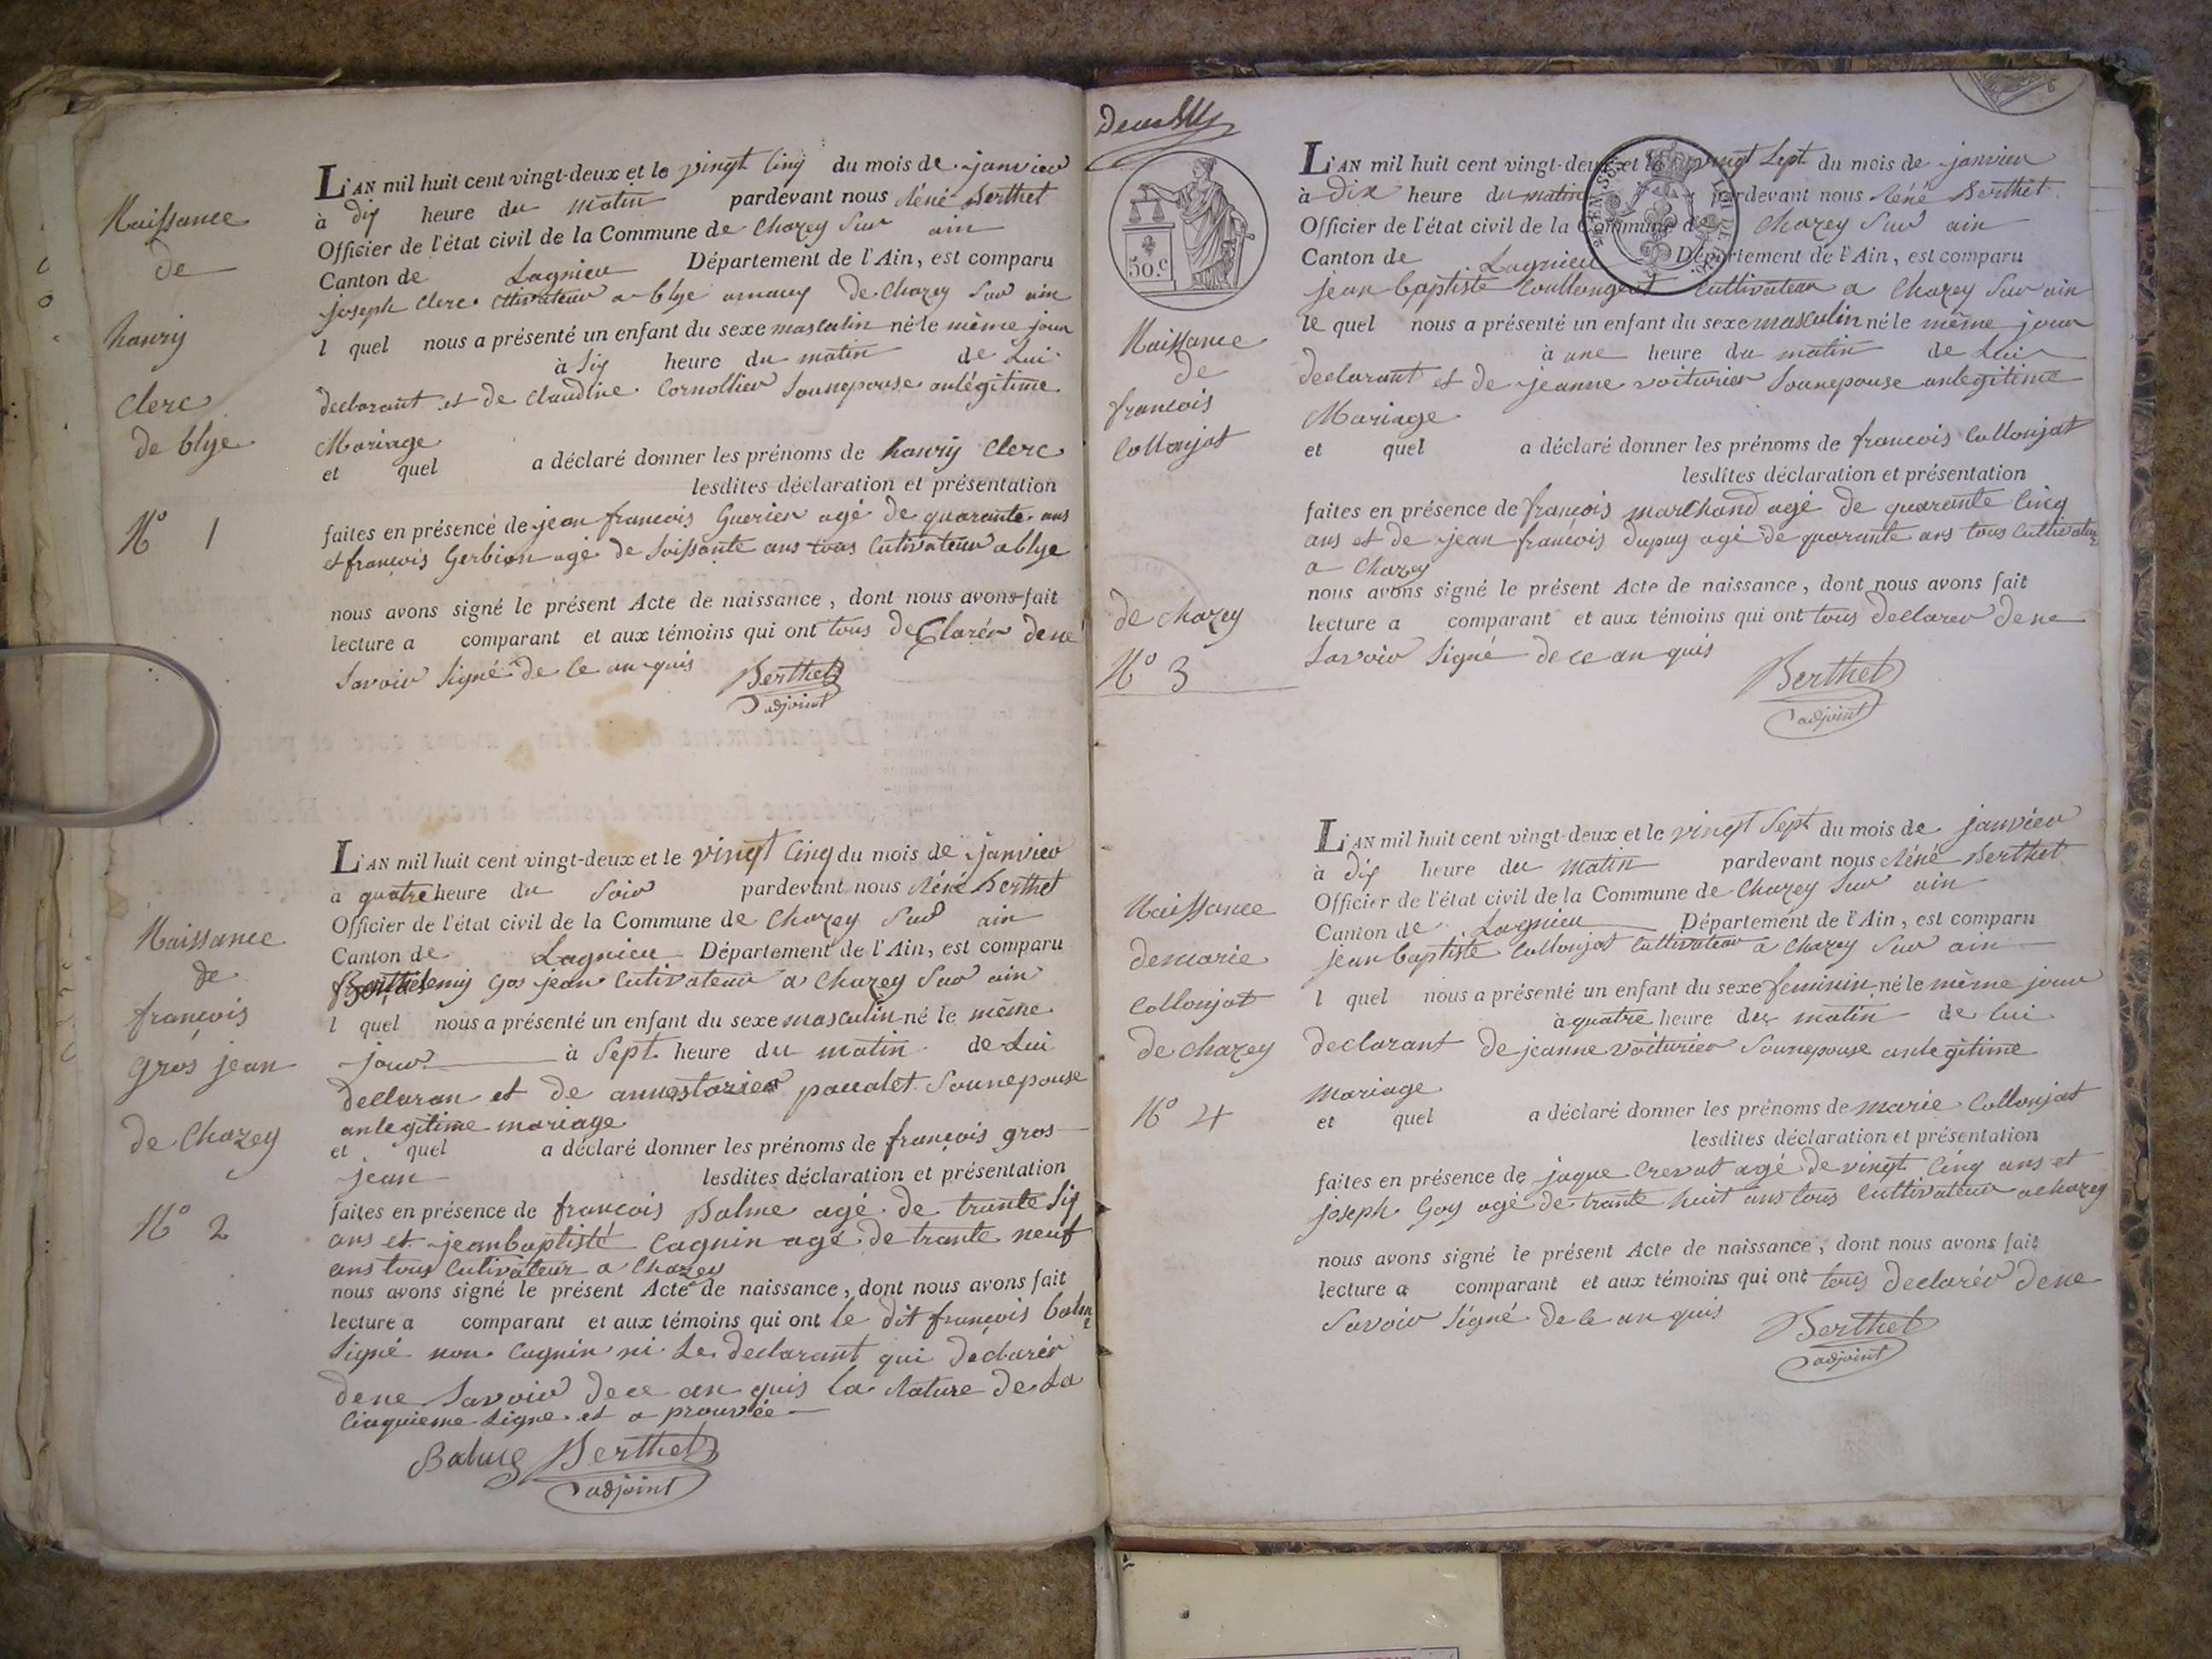 Naissance
de
hanrÿ
Clerc
de blye
N° 1
L'AN mil huit cent vingt-deux et le vingt Cinq du mois de janvier
à dix heure du matin pardevant nous Réné Berthet
Officier de l'état civil de la Commune de Chazey Sur ain
Canton de Lagnieu Département de l'Ain, est comparu
joseph Clerc Ctivateur a blye de Chazey Sur ain
l quel nous a présenté un enfant du sexe masculin né le même jour
à Six heure du matin de Lui
declarant et de Claudine Cornollier Sounepouse anlégitime
Mariage
et quel a déclaré donner les prénoms de hanrÿ Clerc
lesdites déclaration et présentation
faites en présence de jean francois Guerier agé de quarante ans
et françois Gerbion agé de Soissante ans tous Cutivateur a blye
nous avons signé le présent Acte de naissance, dont nous avons fait
lecture a comparant et aux témoins qui ont tous declarér de ne
Savoir Signé de Ce an quis
Berthet
adjoint
Naissance
de
françois
gros jean
de Chazey
N° 2
L'AN mil huit cent vingt-deux et le vingt Cinq du mois de janvier
a quatre heure du Soir pardevant nous Réné Berthet
Officier de l'état civil de la Commune de Chazey Sur ain
Canton de Lagnieu Département de l'Ain, est comparu
Gros jean Cutivateur a Chazey Sur ain
l quel nous a présenté un enfant du sexe masculin né le même
jour à Sept heure du matin de Lui
declaran et de paucalet Sounepouse
anlegitime mariage
et quel a déclaré donner les prénoms de françois gros
jean lesdites déclaration et présentation
faites en présence de francois Balme agé de trante Six
ans et jeanbaptiste Cagnin agé de trante neuf
ans tous Cutivateur a Chazey
nous avons signé le présent Acte de naissance, dont nous avons fait
lecture a comparant et aux témoins qui ont le dit françois balme
Signé non Cagnin ni Le declarant qui declarér
de ne Savoir de ce an quis la Rature de La
Cinquieme Ligne et a prouvée
Balme Berthet
adjoint
50.c
Naissance
de
francois
Collonjat
de chazey
N° 3
L'AN mil huit cent vingt-deux et le vingt Sept du mois de janvier
à Dix heure du matin pardevant nous Réné Berthet
Officier de l'état civil de la Commune de Chazey Sur ain
Canton de Lagnieu Département de l'Ain, est comparu
jean baptiste Coullongeat Cultivateur a Chazey Sur ain
le quel nous a présenté un enfant du sexe masculin né le même jour
à une heure du matin de Lui
declarant et de jeanne voiturier Sounepouse anlegitime
Mariage
et quel a déclaré donner les prénoms de francois Collonjat
lesdites déclaration et présentation
faites en présence de françois marchand agé de quarante Cinq
ans et de jean françois dupuy agé de quarante ans tous Cultivateur
a Chazey
nous avons signé le présent Acte de naissance, dont nous avons fait
lecture a comparant et aux témoins qui ont tous declarer de ne
Savoir Signé de ce an quis
Berthet
adjoint
Naissance
de marie
Collonjat
de chazey
N° 4
L'AN mil huit cent vingt-deux et le vingt Sept du mois de janvier
à dix heure du matin pardevant nous Réné Berthet
Officier de l'état civil de la Commune de Chazey Sur ain
Canton de Lagnieu Département de l'Ain, est comparu
jean baptiste Collonjat Cultivateur a Chazey Sur ain
l quel nous a présenté un enfant du sexe feminin né le même jour
à quatre heure du matin de lui
declarant de jeanne voiturier Sounepouse anlegitime
mariage
et quel a déclaré donner les prénoms de marie Collonjat
lesdites déclaration et présentation
faites en présence de jaque Crevat agé de vingt Cinq ans et
joseph Goy agé de trante huit ans tous Cultivateur a chazey
nous avons signé le présent Acte de naissance, dont nous avons fait
lecture a comparant et aux témoins qui ont tous declarér de ne
Savoir Signé de Ce an quis
Berthet
adjoint